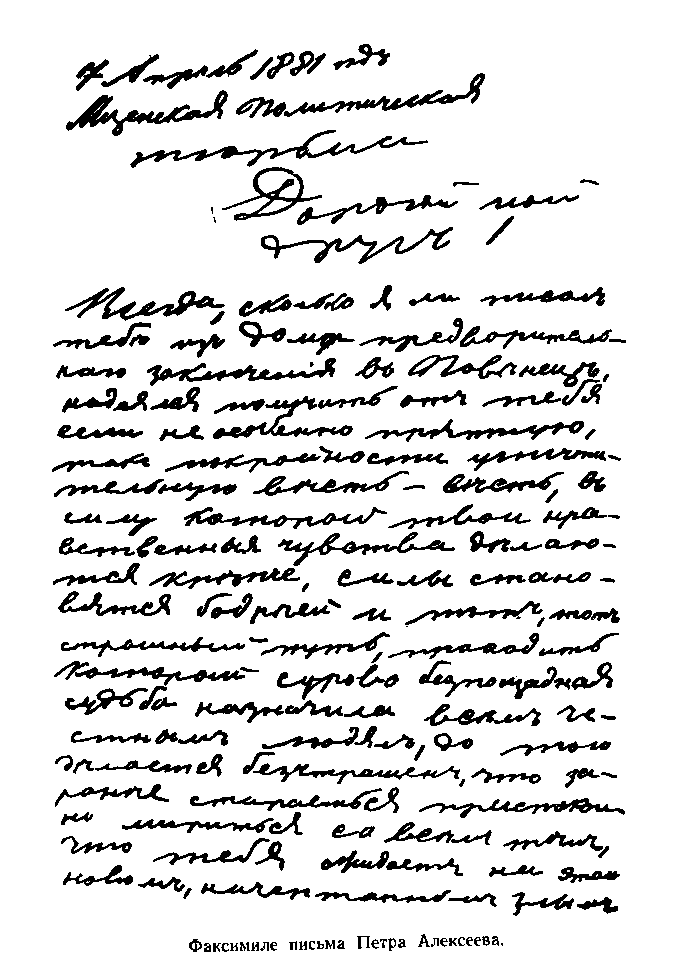 7 Апрель 1881 годъ
Мценская Политическая
тюрьма
Дорогой мой
другъ!
Всегда, сколько я ни писалъ
тебѣ изъ дома предворитель-
наго заключенія въ Повѣнецъ,
надѣялся получить отъ тебя
если не особенно пріятную,
такъ покрайности утѣши-
тельную вѣсть — вѣсть, въ
силу которой твои нра-
вственныя чувства дѣлаю-
тся крѣпче, силы стано-
вятся бодрѣй и тотъ
страшный путь, проходить
который сурово безпощадная
судьба назначила всемъ че-
стнымъ людямъ, до того
дѣлается безстрашенъ, что за-
ранѣе стараешься
мириться со всемъ тѣмъ,
что тебя ожидаетъ на этомъ
новомъ,
Факсимиле письма Петра Алексеева.